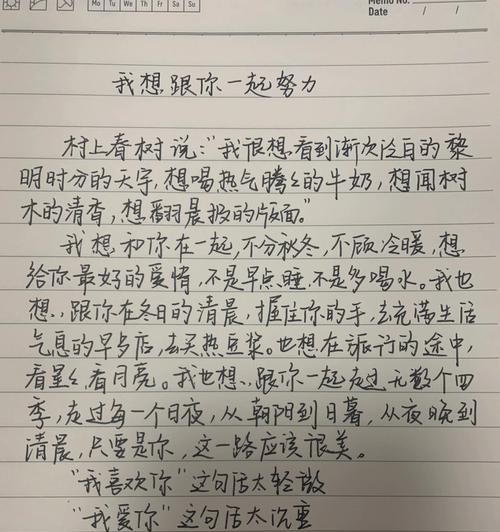 Mo Tu We Th Fr Sa Su
Memo No.
Date / /
我想跟你一起努力
村上春树说:“我很想看到渐次泛白的黎
明时分的天宇,想喝热气腾々的牛奶,想闻树
木的清香,想翻晨报的版面。”
我想和你在一起,不分秋冬,不顾冷暖,想
给你最好的爱情,不是早点睡,不是多喝水。我也
想,跟你在冬日的清晨,握住你的手,去充满生活
气息的早点店,去买热豆浆。也想在旅行的途中,
看星々看月亮。我也想,跟你一起走过无数个四
季,走过每一个日夜,从朝阳到日暮,从夜晚到
清晨,只要是你,这一路应该很美。
“我喜欢你”这句话太轻微
“我爱你”这句话太沉重